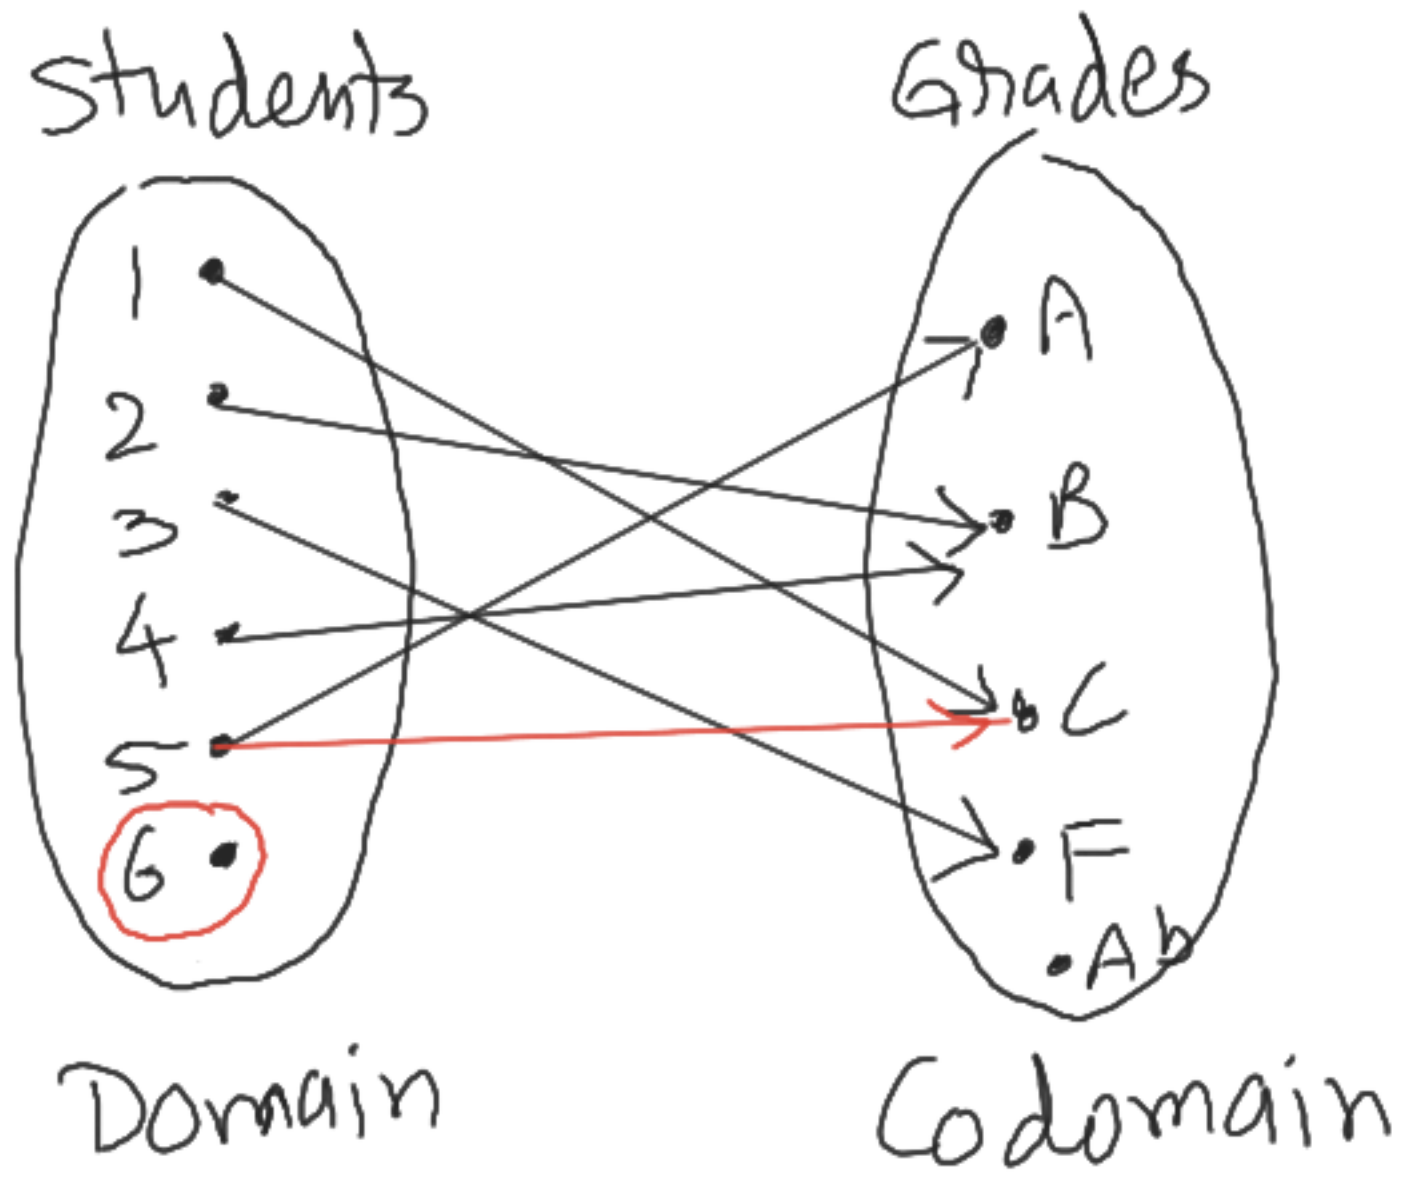 Students
Grades
1
2
3
4
5
6
A
B
C
F
Ab
Domain
Codomain